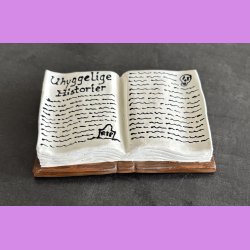 Uhyggelige
Historier